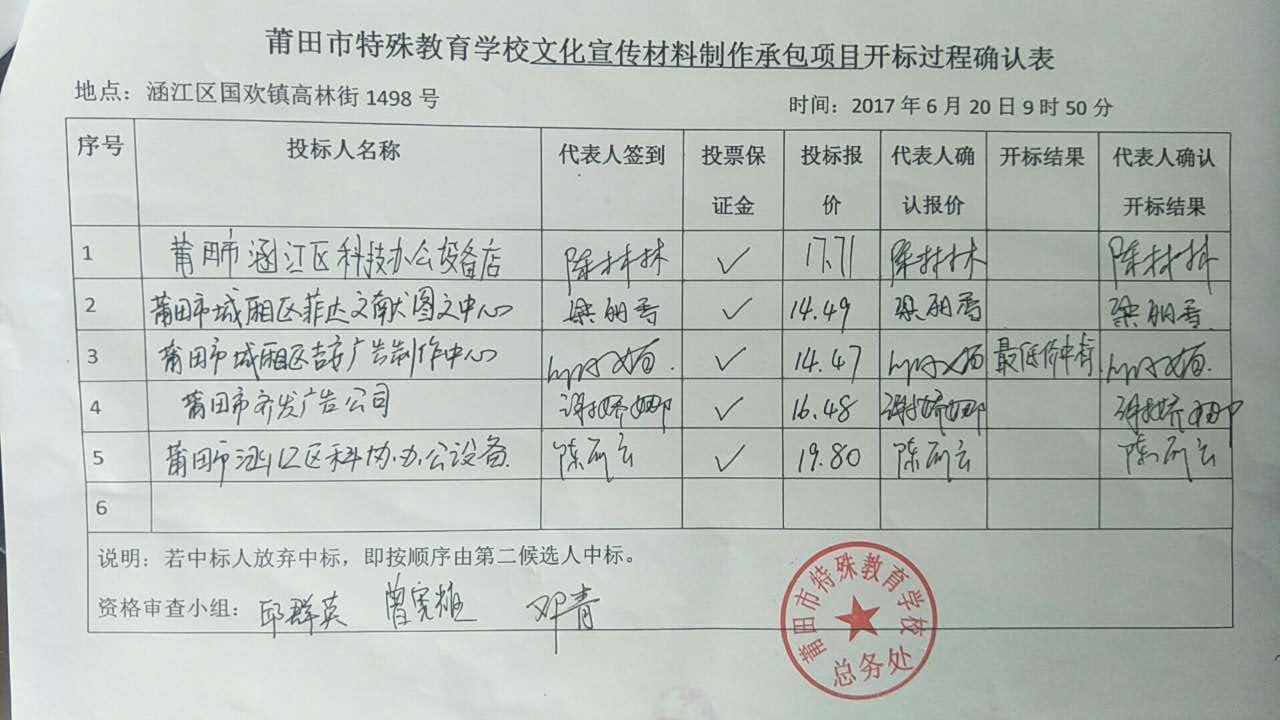 莆田市特殊教育学校文化宣传材料制作承包项目开标过程确认表
地点：涵江区国欢镇高林街1498号 时间：2017年6月20日9时50分
序号 投标人名称 代表人签到 投票保证金 投标报价 代表人确认报价 开标结果 代表人确认开标结果
1 莆田市涵江区科技办公设备店 陈林林 ✓ 17.71 陈林林 陈林林
2 莆田市城厢区菲达文献图文中心 梁丽香 ✓ 14.49 梁丽香 梁丽香
3 莆田市城厢区吉安广告制作中心 ✓ 14.47 最低价中标
4 莆田市齐发广告公司 谢娇娜 ✓ 16.48 谢娇娜 谢娇娜
5 莆田市涵江区科协办公设备 陈丽云 ✓ 19.80 陈丽云 陈丽云
6
说明：若中标人放弃中标，即按顺序由第二候选人中标。
资格审查小组：邱群英 曾宪雄 邓青
莆田市特殊教育学校
总务处